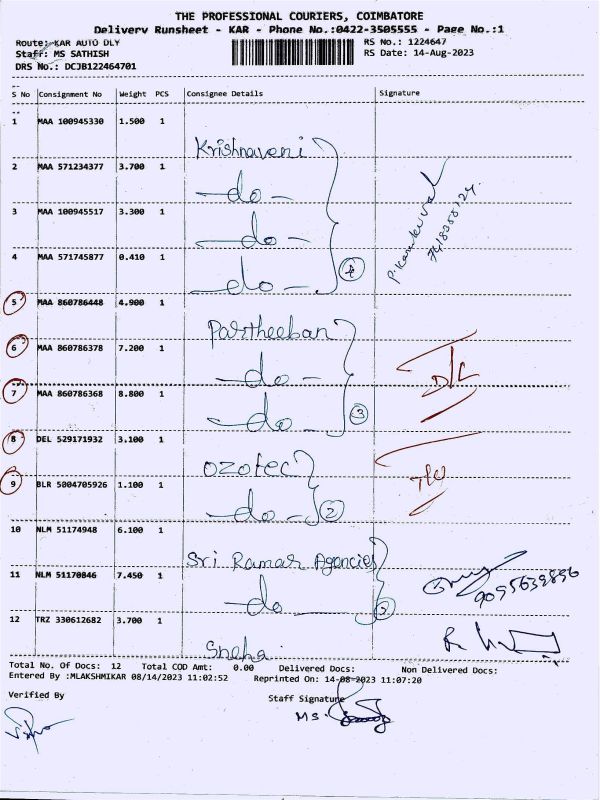 THE PROFESSIONAL COURIERS, COIMBATORE
Delivery Runsheet - KAR - Phone No.:0422-3505555 - Page No.:1
Route: KAR AUTO DLY
RS No.: 1224647
Staff: MS SATHISH
RS Date: 14-Aug-2023
DRS No.: DCJB122464701
S No Consignment No Weight PCS Consignee Details Signature
1 MAA 100945330 1.500 1 Krishnaveni
2 MAA 571234377 3.700 1 -do-
3 MAA 100945517 3.300 1 -do-
4 MAA 571745877 0.410 1 -do- 4
5 MAA 860786448 4.900 1 Partheeban
6 MAA 860786378 7.200 1 -do- D/L
7 MAA 860786368 8.800 1 -do- 3
8 DEL 529171932 3.100 1 Ozotec
9 BLR 5004705926 1.100 1 -do- 2
10 NLM 51174948 6.100 1 Sri Ramar Agencies
11 NLM 51170846 7.450 1 -do- 9095639896
12 TRZ 330612682 3.700 1 Sneha
Total No. Of Docs: 12 Total COD Amt: 0.00 Delivered Docs: Non Delivered Docs:
Entered By :MLAKSHMIKAR 08/14/2023 11:02:52 Reprinted On: 14-08-2023 11:07:20
Verified By
Staff Signature
MS.